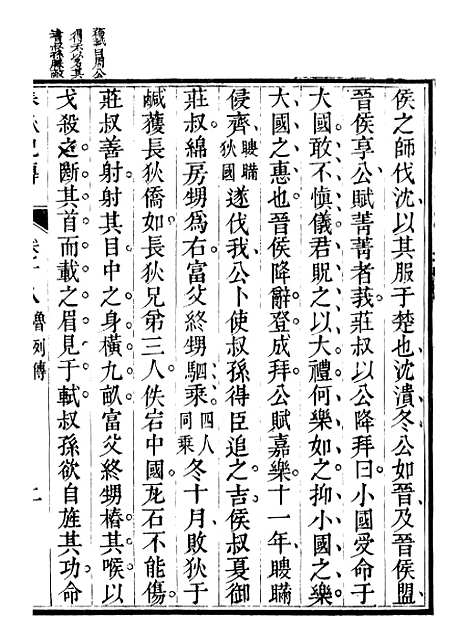 侯之師伐沈以其服于楚也沈潰冬公如晉及晉侯盟
晉侯享公賦菁菁者莪莊叔以公降拜曰小國受命于
大國敢不慎儀君貺之以大禮何樂如之抑小國之樂
大國之惠也晉侯降辭登成拜公賦嘉樂十一年瞍瞞
侵齊瞍瞞狄國遂伐我公卜使叔孫得臣追之吉侯叔夏御
莊叔綿房甥爲右富父終甥駟乘四人同乘冬十月敗狄于
鹹獲長狄僑如長狄兄弟三人佚宕中國瓦石不能傷
莊叔善射射其目中之身橫九畝富父終甥樁其喉以
戈殺之斷其首而載之眉見于軾叔孫欲自旌其功命
卷十八 魯列傳